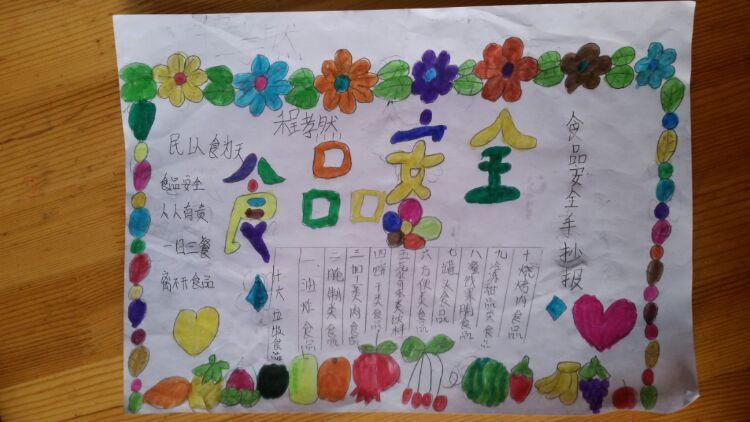 程孝然
食品安全
民以食为天
食品安全
人人有责
一日三餐
离不开食品
食品安全手抄报
十大垃圾食品
一油炸食品
二腌制类食品
三加工类肉食品
四饼干类食品
五汽水可乐类饮料
六方便类食品
七罐头食品
八蜜饯果脯食品
九冷冻甜品类食品
十烧烤肉食品